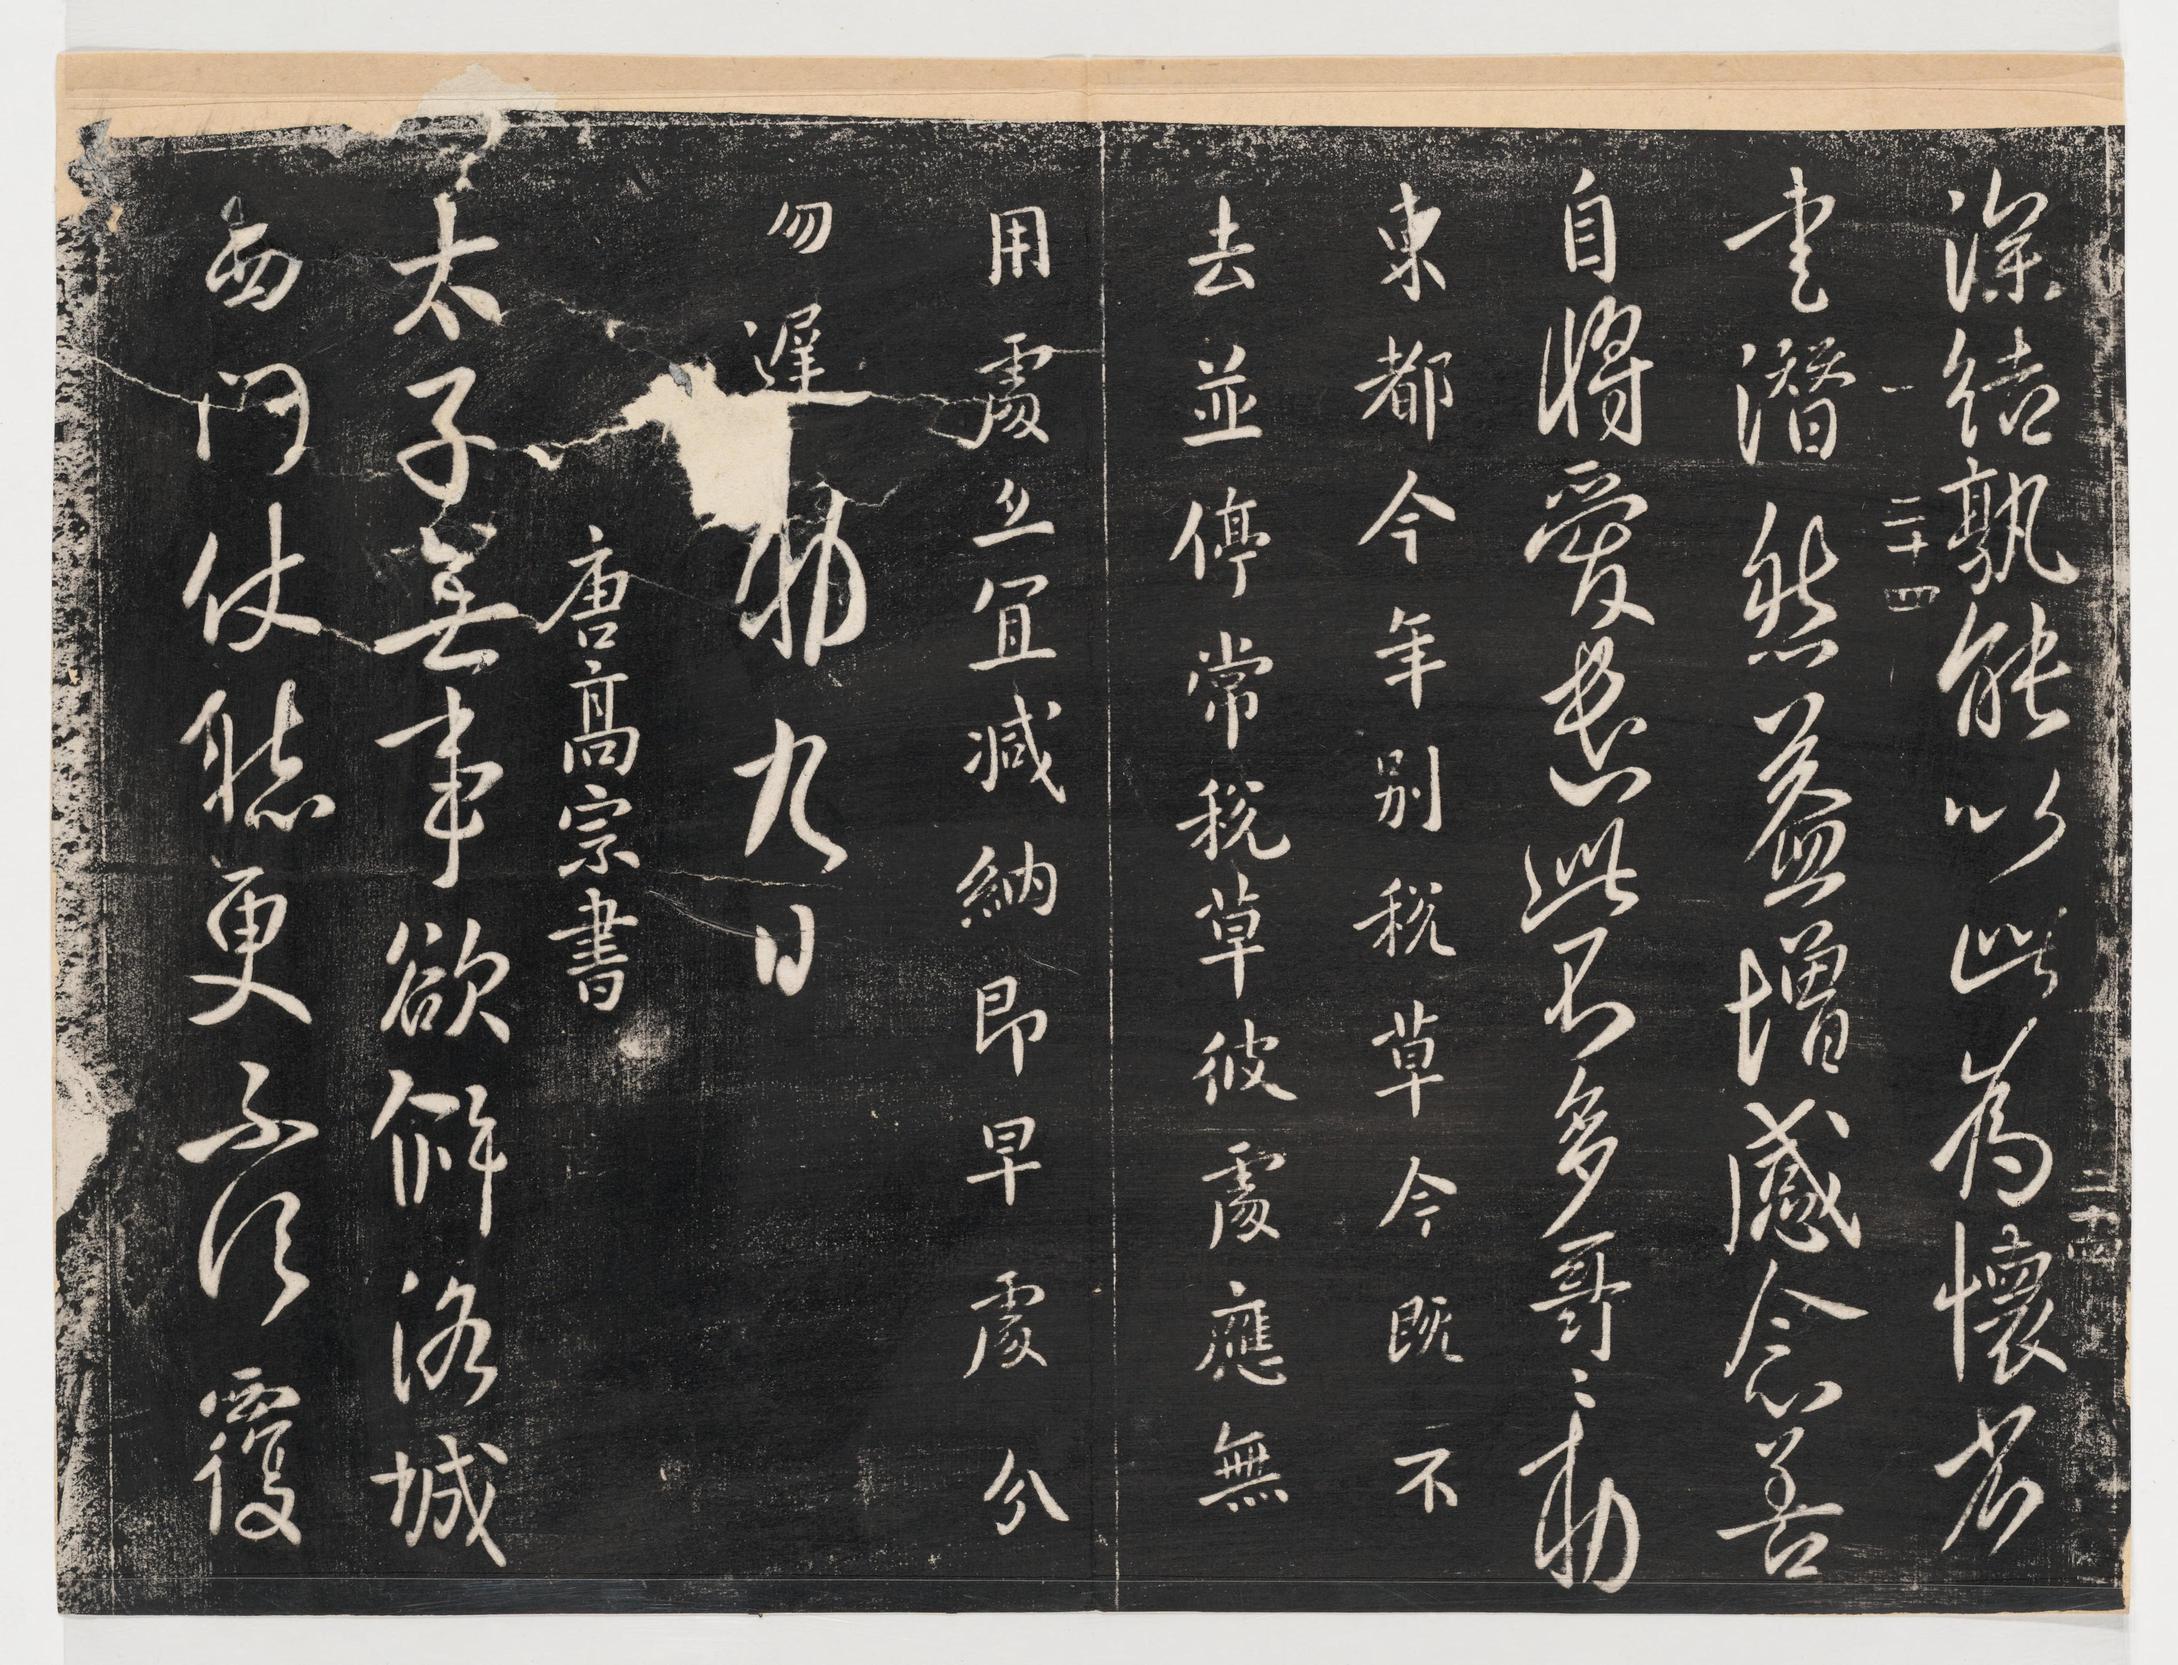 深結孰能以此為懷省
一 二十四
書潛然益增感念善
自將愛遣此不多哥〻敕
東都今年別稅草今既不
去並停常稅草彼處應無
用處亦宜減納即早處分
勿遲 敕 九日
唐高宗書
太子無事欲解洛城
西門仗聽更不須覆
二十四